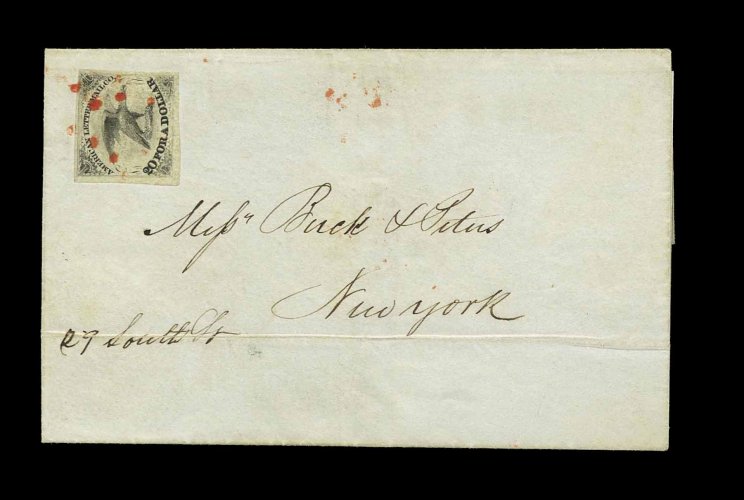 AMERICAN LETTER MAIL CO.
20 FOR A DOLLAR
Messrs Buck & Peters
New York
29 South St